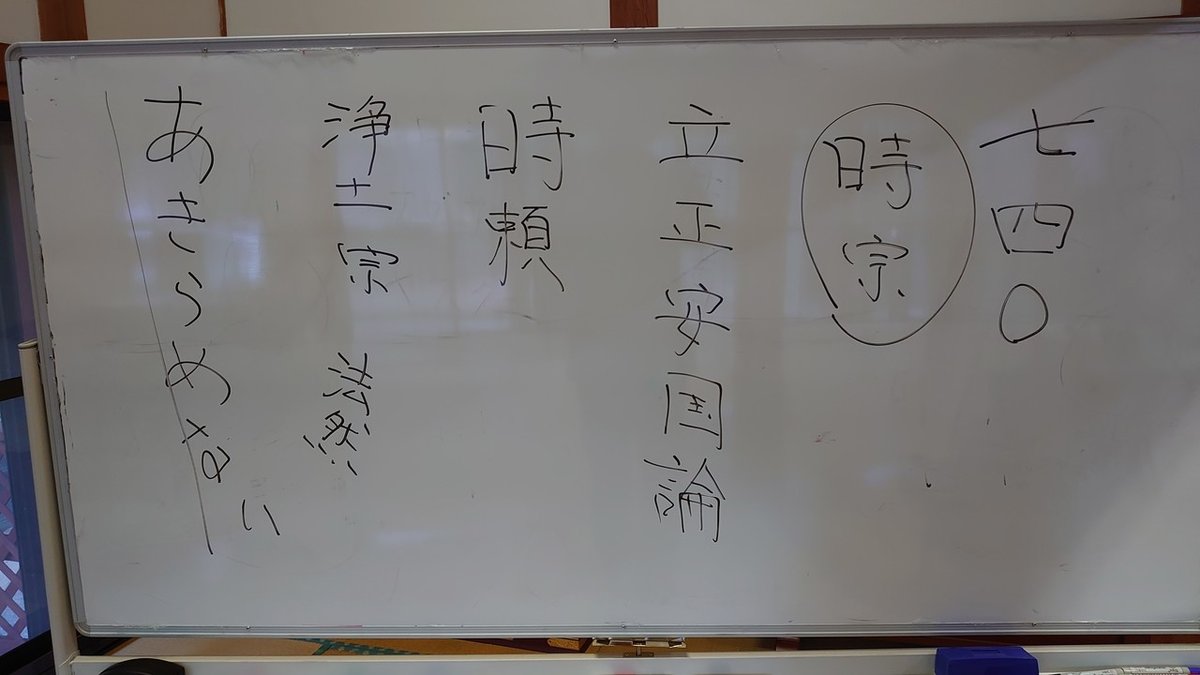 七四〇
時宗
立正安国論
時頼
浄土宗 法然
あきらめない